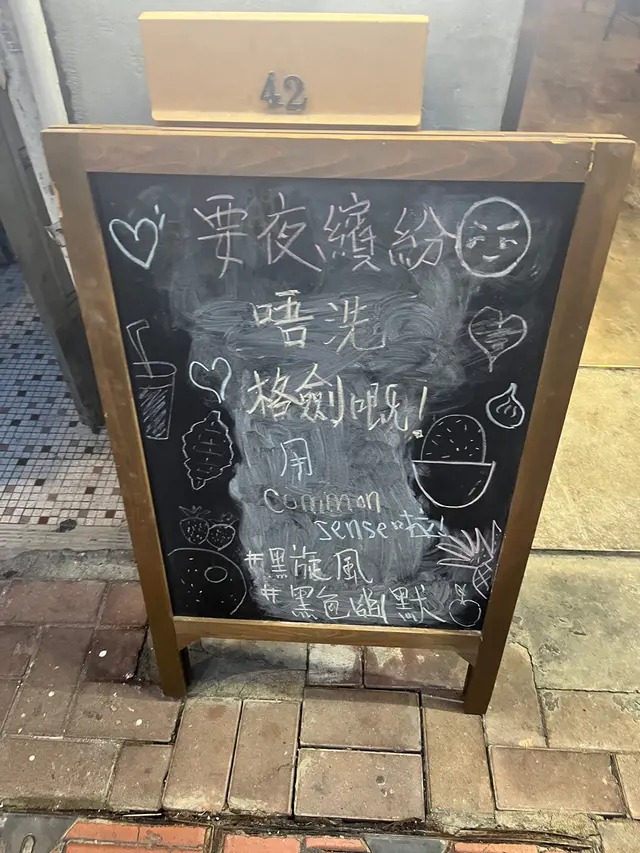 42
要夜、繽紛
唔洗
格劍嘅!
用
common
sense啦!
#黑旋風
#黑色幽默